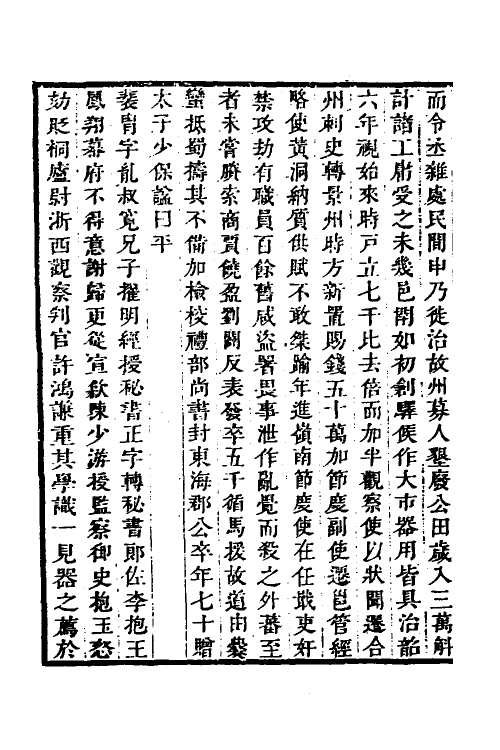 而令丞雜處民間申乃徙治故州募人墾廢公田歲入三萬斛
計諸工庸受之未幾邑閈如初創驛候作大市器用皆具治韶
六年視始來時戶止七千比去倍而加半觀察使以狀聞遷合
州刺史轉景州時方新置賜錢五十萬加節度副使遷邕管經
略使黃洞納質供賦不敢桀踰年進嶺南節度使在任戢吏奸
禁攻劫有職員百餘舊咸盜署畏事泄作亂覺而殺之外蕃至
者未嘗賸索商賈饒盈劉闢反表發卒五千循馬援故道由爨
蠻抵蜀擣其不備加檢校禮部尚書封東海郡公卒年七十贈
太子少保諡曰平
裴冑字胤叔寬兄子擢明經授秘書正字轉秘書郎佐李抱玉
鳳翔幕府不得意謝歸更從宣歙陳少游授監察御史抱玉怒
劾貶桐廬尉浙西觀察判官許鴻謙重其學識一見器之薦於